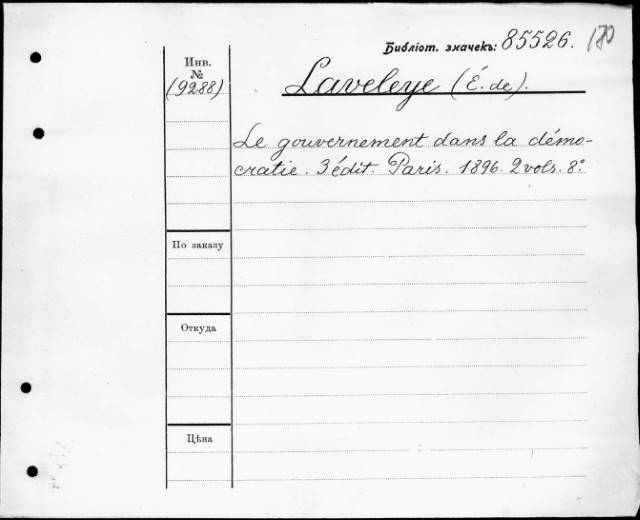 Библіот. значекъ: 85526.
Инв.
№
(9288)
Laveleye (É. de).
Le gouvernement dans la démo-
cratie. 3 édit. Paris. 1896. 2 vols. 8°.
По заказу
Откуда
Цѣна